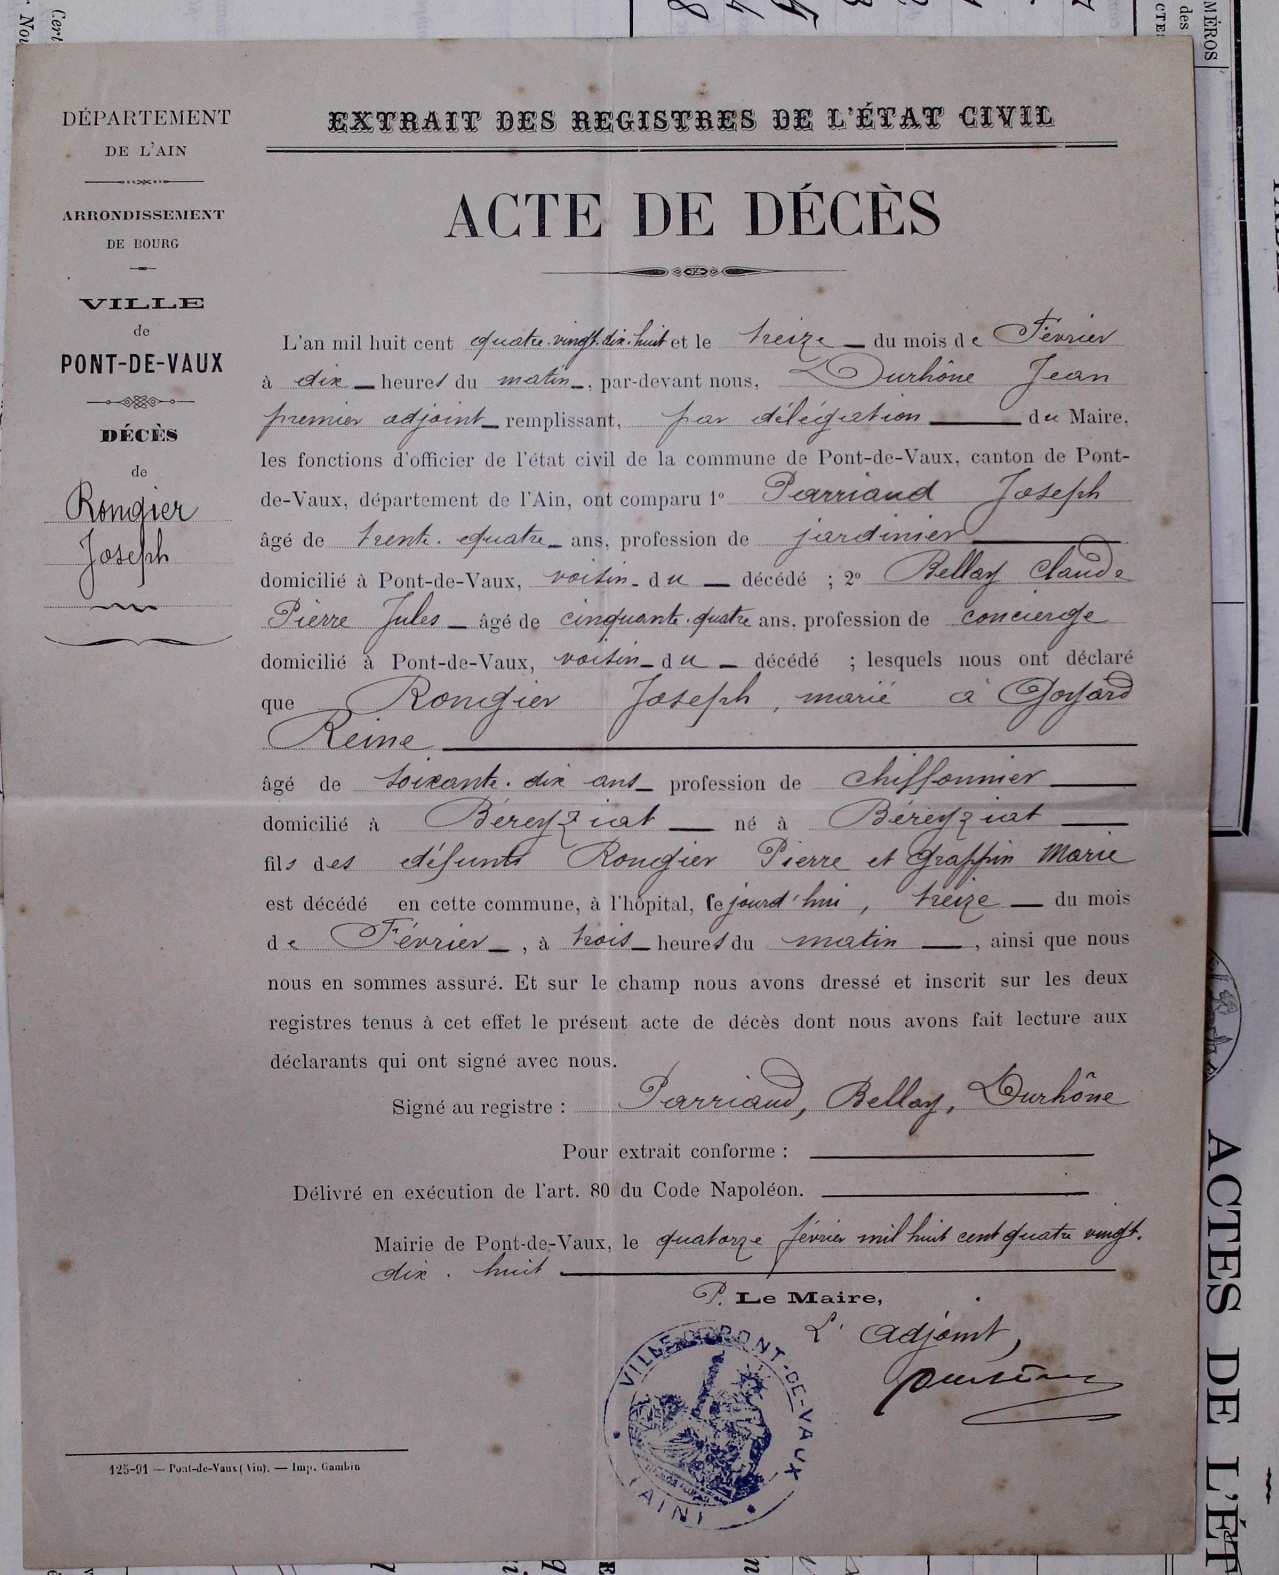 DÉPARTEMENT
DE L'AIN
ARRONDISSEMENT
DE BOURG
VILLE
de
PONT-DE-VAUX
DÉCÈS
de
Rongier
Joseph
EXTRAIT DES REGISTRES DE L'ÉTAT CIVIL
ACTE DE DÉCÈS
L'an mil huit cent quatre-vingt-dix-huit et le treize du mois de Février
à dix heures du matin, par-devant nous, Durhône Jean
premier adjoint remplissant, par délégation du Maire,
les fonctions d'officier de l'état civil de la commune de Pont-de-Vaux, canton de Pont-
de-Vaux, département de l'Ain, ont comparu 1º Parriaud Joseph
âgé de trente-quatre ans, profession de jardinier
domicilié à Pont-de-Vaux, voisin du décédé ; 2º Bellay Claude
Pierre Jules âgé de cinquante-quatre ans, profession de concierge
domicilié à Pont-de-Vaux, voisin du décédé ; lesquels nous ont déclaré
que Rongier Joseph, marié à Goyard
Reine
âgé de soixante-dix ans profession de chiffonnier
domicilié à Béreyziat né à Béreyziat
fils des défunts Rongier Pierre et Graffin Marie
est décédé en cette commune, à l'hôpital, ce jourd'hui, treize du mois
de Février, à trois heures du matin, ainsi que nous
nous en sommes assuré. Et sur le champ nous avons dressé et inscrit sur les deux
registres tenus à cet effet le présent acte de décès dont nous avons fait lecture aux
déclarants qui ont signé avec nous.
Signé au registre : Parriaud, Bellay, Durhône
Pour extrait conforme :
Délivré en exécution de l'art. 80 du Code Napoléon.
Mairie de Pont-de-Vaux, le quatorze février mil huit cent quatre vingt-
dix-huit
P. Le Maire,
L'adjoint,
VILLE DE PONT-DE-VAUX
(AIN)
125-91 — Pont-de-Vaux (Ain). — Imp. Gambin
MÉROS
des
ACTES DE L'ÉT